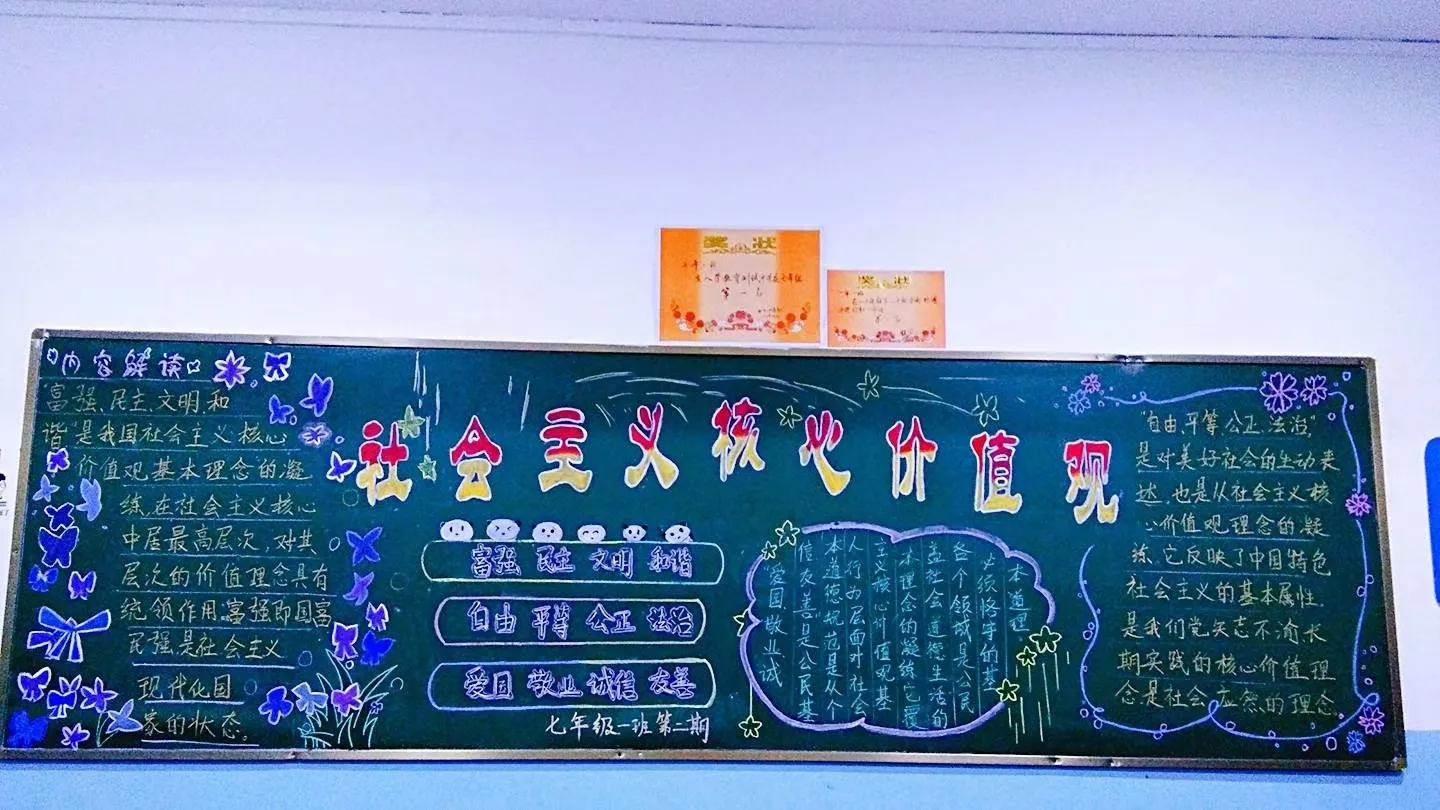 奖状
第一名
奖状
内容解读
"富强、民主、文明、和
谐"是我国社会主义核心
价值观基本理念的凝
练,在社会主义核心
中居最高层次,对其
层次的价值理念具有
统领作用。富强即国富
民强,是社会主义
现代化国
家的状态。
社会主义核心价值观
富强 民主 文明 和谐
自由 平等 公正 法治
爱国 敬业 诚信 友善
七年级一班第二期
爱国敬业诚
信友善是公民基
本道德规范是从个
人行为层面对社会
主义核心价值观基
本理念的凝练它覆
盖社会道德生活的
各个领域是公民
必须恪守的基
本道理
"自由、平等、公正、法治",
是对美好社会的生动表
达,也是从社会主义核
心价值观理念的凝
练、它反映了中国特色
社会主义的基本属性
是我们党矢志不渝长
期实践的核心价值理
念.是社会应然的理念.